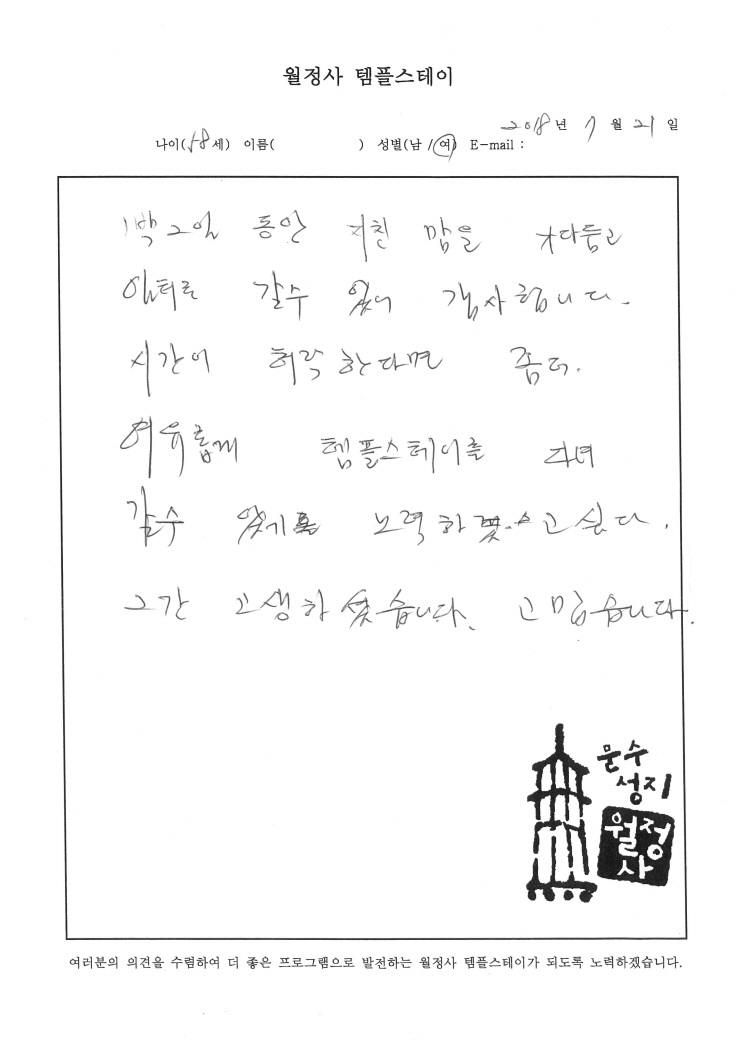 월정사 템플스테이
2018년 7월 21일
나이(58세) 이름( ) 성별(남/여) E-mail :
1박2일 동안 지친 맘을 가다듬고
일터로 갈수 있어 감사합니다.
시간이 허락한다면 좀더.
여유롭게 템플스테이를 다녀
갈수 있기를 노력하고 싶다.
그간 고생하셨습니다. 고맙습니다.
문수
성지
월정
사
여러분의 의견을 수렴하여 더 좋은 프로그램으로 발전하는 월정사 템플스테이가 되도록 노력하겠습니다.